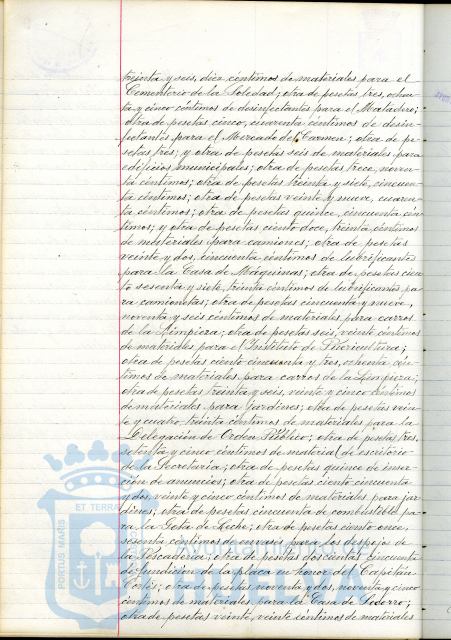 treinta y seis, diez céntimos de materiales para el
Cementerio de la Soledad; otra de pesetas tres, ochen-
ta y cinco céntimos de desinfectantes para el Matadero;
otra de pesetas cinco, cuarenta céntimos de desin-
fectantes para el Mercado del Carmen; otra de pe-
setas tres; y otra de pesetas seis de materiales para
edificios municipales; otra de pesetas trece, noven-
ta céntimos; otra de pesetas treinta y siete, cincuen-
ta céntimos; otra de pesetas veinte y nueve, cuaren-
ta céntimos; otra de pesetas quince, cincuenta cén-
timos; y otra de pesetas ciento doce, treinta céntimos
de materiales para camiones; otra de pesetas
veinte y dos, cincuenta céntimos de lubrificantes
para la Casa de Máquinas; otra de pesetas cien-
to sesenta y siete, treinta céntimos de lubrificantes pa-
ra camionetas; otra de pesetas cincuenta y nueve,
noventa y seis céntimos de materiales para carros
de la Limpieza; otra de pesetas seis, veinte céntimos
de materiales para el Instituto de Puericultura;
otra de pesetas ciento cincuenta y tres, ochenta cén-
timos de materiales para carros de la Limpieza;
otra de pesetas treinta y seis, veinte y cinco céntimos
de materiales para Jardines; otra de pesetas vein-
te y cuatro, treinta céntimos de materiales para la
Delegación de Orden Público; otra de pesetas tres,
setenta y cinco céntimos de material de escritorio
de la Secretaria; otra de pesetas quince de inser-
ción de anuncios; otra de pesetas ciento cincuenta
y dos, veinte y cinco céntimos de materiales para jar-
dines; otra de pesetas cincuenta de combustible pa-
ra la Gota de Leche; otra de pesetas ciento once,
sesenta céntimos de envases para los despojos de
la Pescaderia; otra de pesetas doscientas cincuenta
de fundición de la placa en honor del Capitán
Cortés; otra de pesetas noventa y dos, noventa y cinco
céntimos de materiales para la Casa de Socorro;
otra de pesetas veinte, veinte céntimos de materiales
PORTUS MARIS
ET TERRA